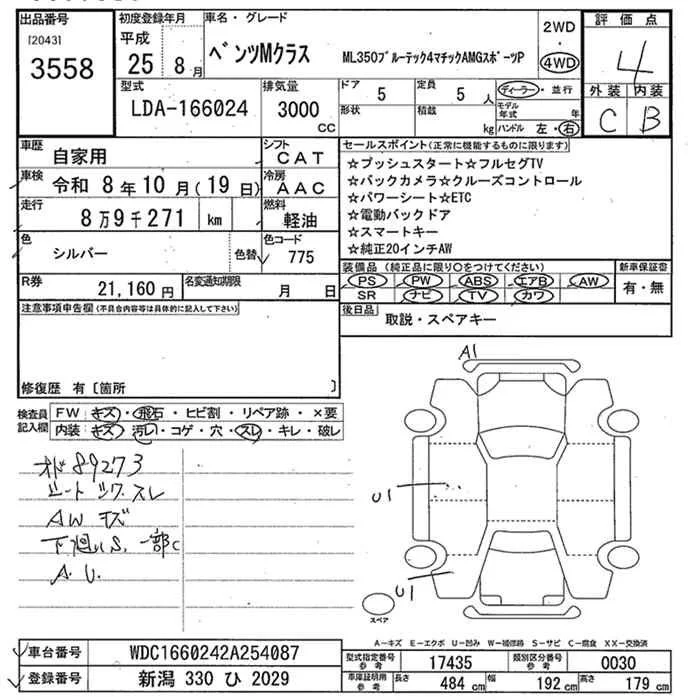 出品番号
[2043]
3558
初度登録年月
平成
25 8月
車名・グレード
ベンツMクラス
ML350ブルーテック4マチックAMGスポーツP
2WD
・
4WD
評価点
4
外装 内装
C B
型式
LDA-166024
排気量
3000
cc
ドア
5
定員
5 人
形状
積載
kg
ディーラー・並行
モデル年式 年
ハンドル 左・右
車歴
自家用
シフト
CAT
車検
令和 8年10月(19日)
冷房
AAC
走行
8万9千271 km
燃料
軽油
色
シルバー
色替
色コード
775
セールスポイント(正常に機能するものに限ります)
☆プッシュスタート☆フルセグTV
☆バックカメラ☆クルーズコントロール
☆パワーシート☆ETC
☆電動バックドア
☆スマートキー
☆純正20インチAW
R券
21,160円
名変通知期限
月 日
装備品(純正品に限り○をつけてください)
PS PW ABS エアB AW
SR ナビ TV カワ
新車保証書
有・無
注意事項申告欄(不具合内容等は具体的に記入して下さい)
後日品
取説・スペアキー
修復歴 有〔箇所 〕
検査員記入欄
FW キズ・飛石・ヒビ割・リペア跡・×要
内装 キズ・汚レ・コゲ・穴・スレ・キレ・破レ
オド89273
シートシワ.スレ
AWキズ
下廻りS.一部C
A.U.
A1
U1
U1
スペア
A―キズ E―エクボ U―凹み W―補修跡 S―サビ C―腐食 XX―交換済
車台番号
WDC1660242A254087
登録番号
新潟 330 ひ 2029
型式指定番号参考
17435
類別区分番号参考
0030
車庫証明用参考
長さ
484 cm
幅
192 cm
高さ
179 cm